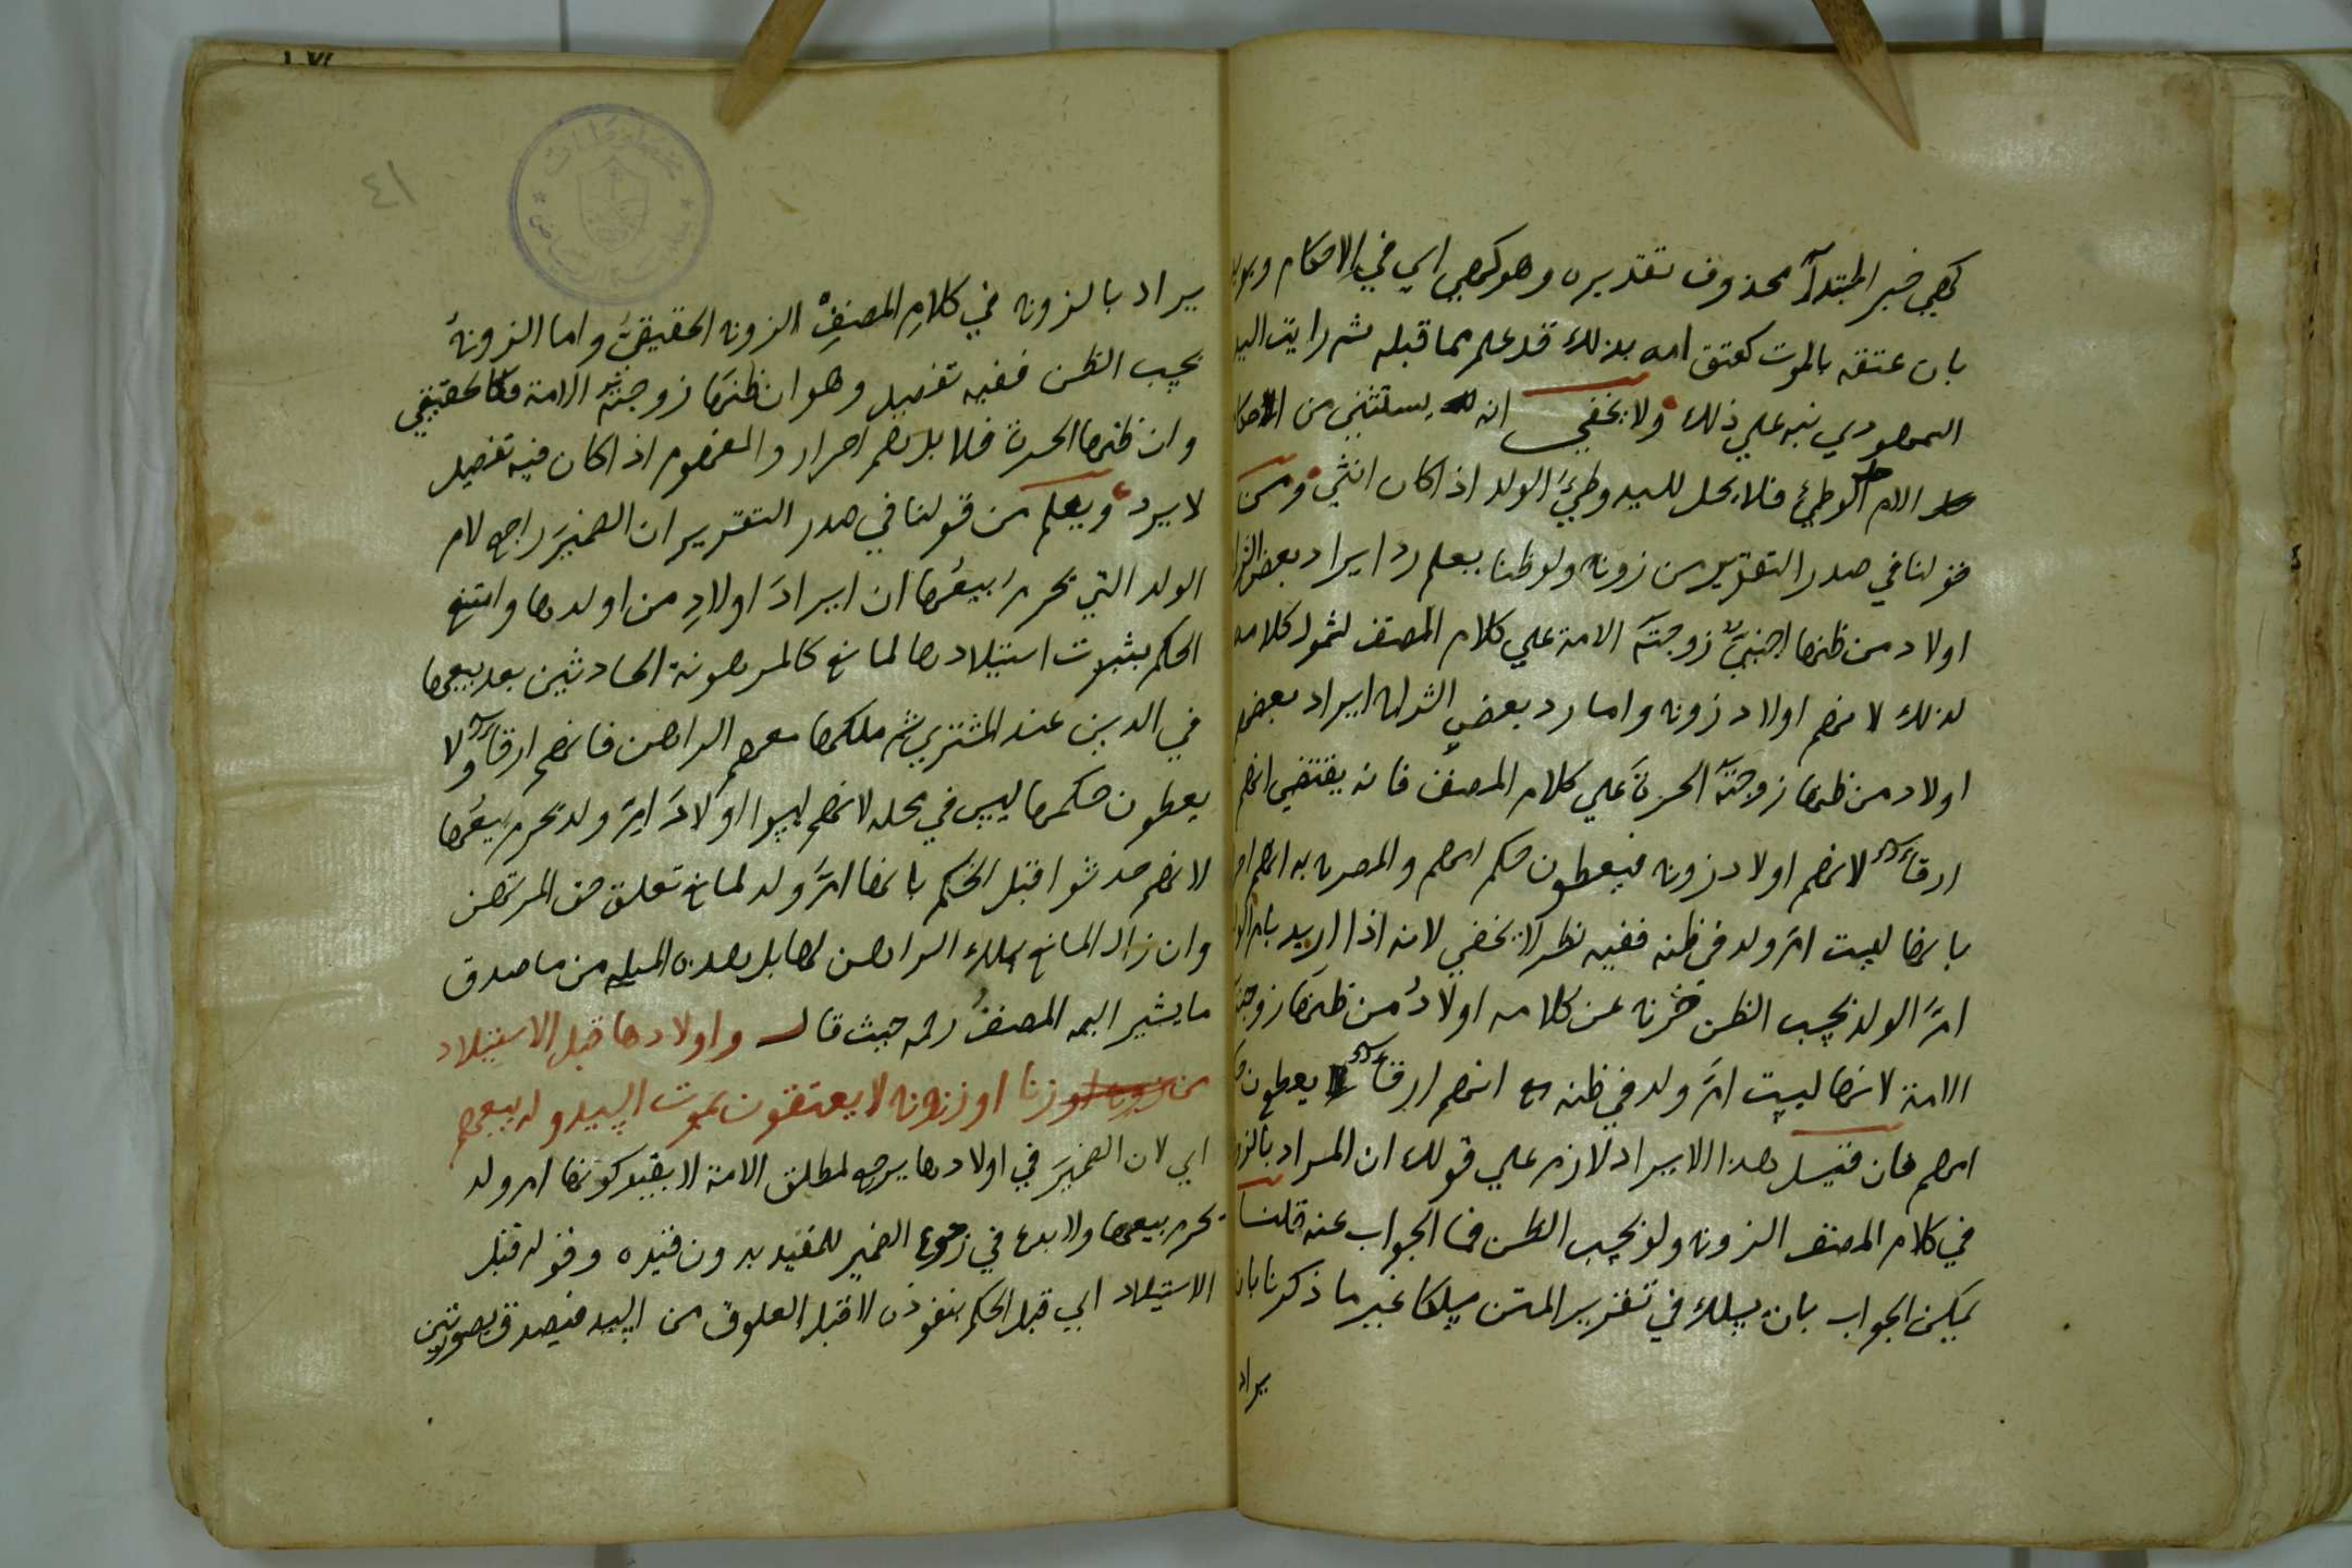 كهي خبر المبتدأ محذوف تقديره وهو كهي اي في الاحكام
بان عتقه بالموت كعتق امه بذلك قد علم مما قبله ثم رايت
السمهودي نبه علي ذلك ولا يخفي انه يستثني من
الام الوطئ فلا يحل للسيد وطئ الولد اذا كان انثي ومن
قولنا في صدر التقرير من زوج ولو ظنا يعلم رد ايراد بعض
اولاد من ظنها اجنبي زوجته الامة علي كلام المصنف لشمول كلامه
لذلك لانهم اولاد زوج واما رد بعض الشراح ايراد بعضهم
اولاد من ظنها زوجته الحرة علي كلام المصنف فانه يقتضي انهم
ارقاء لانهم اولاد زوج فيعطون حكم امهم والمصرح به انهم
بانها ليست ام ولد في ظنه ففيه نظر لا يخفي لانه اذا اريد بام
ام الولد بحسب الظن خرج عن كلامه اولاد من ظنها زوجته
الامة لانها ليست ام ولد في ظنه مع انهم ارقاء يعطون
امهم فان قيل هذا الايراد لازم علي قولك ان المراد
في كلام المصنف الزوج ولو بحسب الظن فما الجواب عنه قلنا
يمكن الجواب بان يسلك في تقرير المتن مسلكا غير ما ذكرنا بان
يراد
٤١
يراد بالزوج في كلام المصنف الزوج الحقيقي واما الزوج
بحسب الظن ففيه تفصيل وهو ان ظنها زوجته الامة فكالحقيقي
وان ظنها الحرة فلا بل هم احرار والمفهوم اذا كان فيه تفصيل
لا يرد ويعلم من قولنا في صدر التقرير ان الضمير راجع لام
الولد التي تحرم بيعها ان ايراد اولاد من اولدها وامتنع
الحكم بثبوت استيلادها لمانع كالمرهونة الحادثين بعد بيعها
في الدين عند المشتري ثم ملكها معهم الراهن فانهم ارقاء ولا
يعطون حكمها ليس في محله لانهم ليسوا اولاد ام ولد تحرم بيعها
لانهم حدثوا قبل الحكم بانها ام ولد لمانع تعلق حق المرتهن
وان زال المانع بملك الراهن لها بل هذه المسئلة من ما صدق
ما يشير اليه المصنف رحمه حيث قال واولادها قبل الاستيلاد
من زنا او زوج لا يعتقون بموت السيد وله بيعهم
اي لان الضمير في اولادها يرجع لمطلق الامة لا بقيد كونها ام ولد
تحرم بيعها ولا بدع في رجوع الضمير للمقيد بدون قيده وقوله قبل
الاستيلاد اي قبل الحكم بنفوذه لا قبل العلوق من السيد فيصدق بصورتين